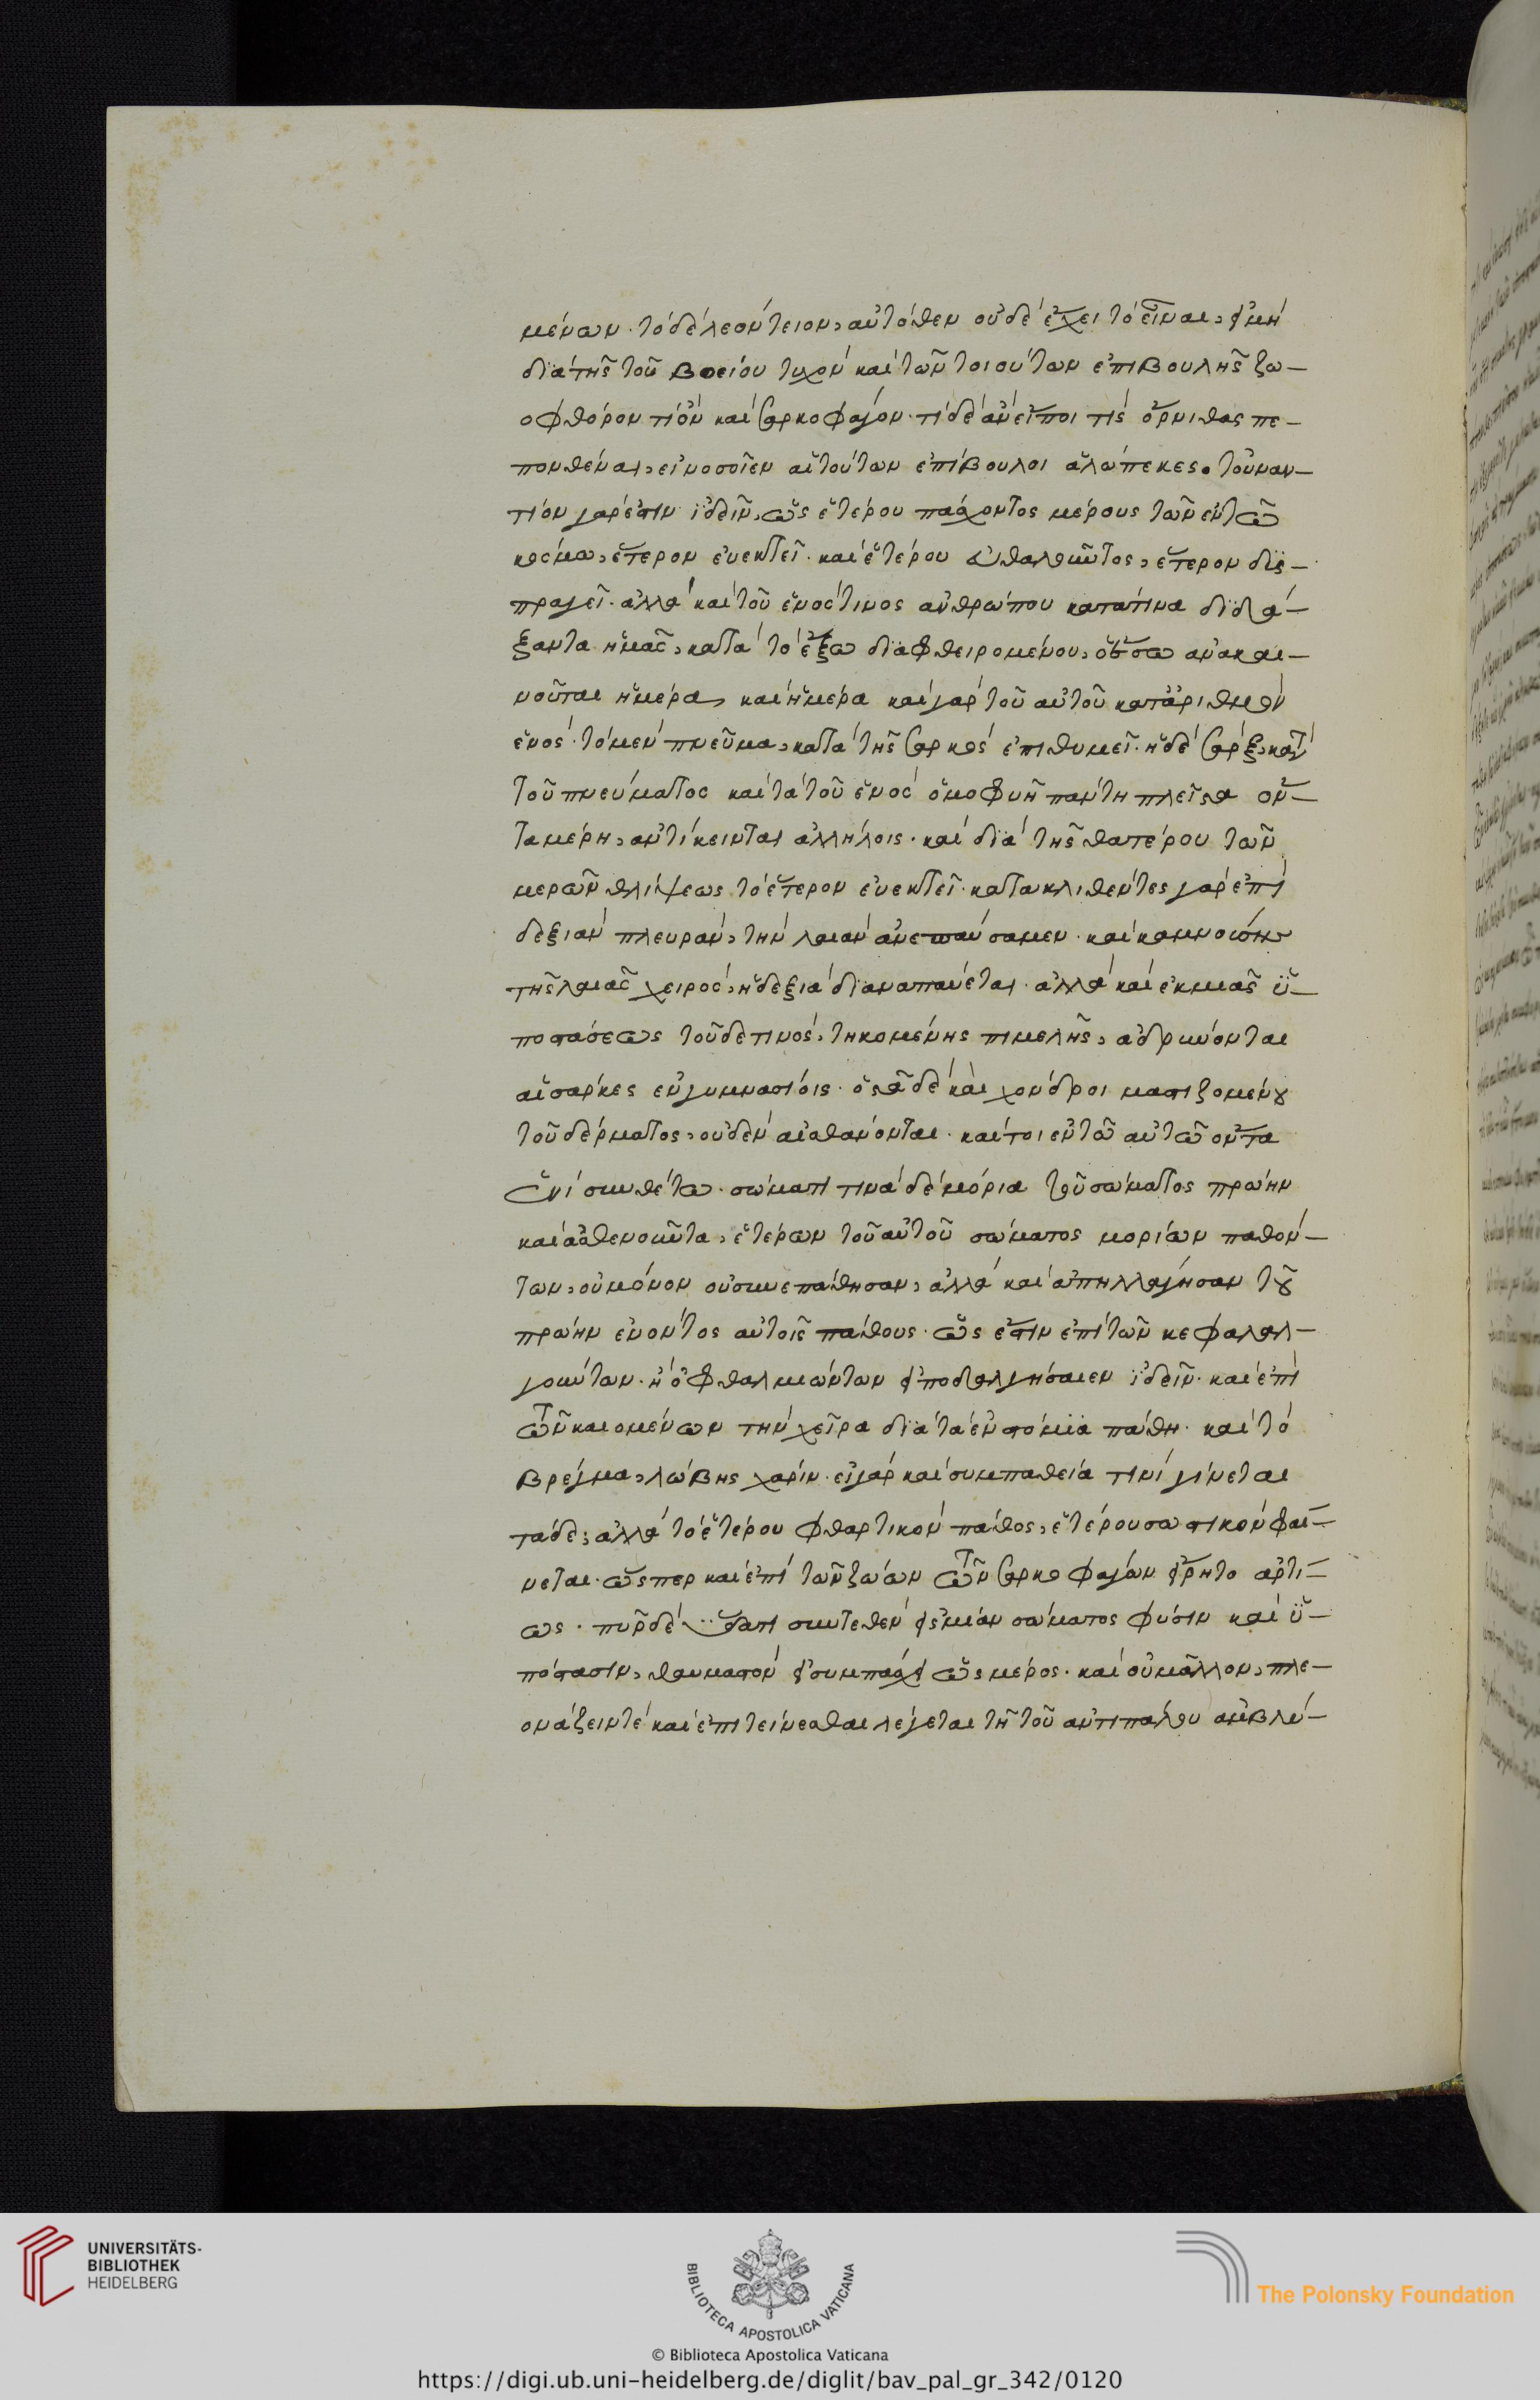 μένων. τὸ δὲ λεόντειον, αὐτόθεν οὐδὲ ἔχει τὸ εἶναι, εἰ μὴ
διὰ τῆς τοῦ βοείου τυχὸν καὶ τῶν τοιούτων ἐπιβουλῆς ζω-
οφθόρον τι ὂν καὶ σαρκοφάγον. τί δὲ ἂν εἴποι τις ὄρνιθας πε-
πονθέναι, εἰ νοσοῖεν αἱ τούτων ἐπίβουλοι ἀλώπεκες. τοὐναν-
τίον γάρ ἐστιν ἰδεῖν, ὡς ἑτέρου πάσχοντος μέρους τῶν ἐν τῶ
κόσμω, ἕτερον εὐεκτεῖ. καὶ ἑτέρου εὐθαλοῦντος, ἕτερον δυς-
πραγεῖ. ἀλλὰ καὶ τοῦ ἑνός τινος ἀνθρώπου κατά τινα διδά-
ξαντα ἡμᾶς, κατὰ τὸ ἔξω διαφθειρομένου, ὁ ἔσω ἀνακαι-
νοῦται ἡμέρα, καὶ ἡμέρα καὶ γὰρ τοῦ αὐτοῦ κατὰ ἀριθμὸν
ἑνός. τὸ μὲν πνεῦμα, κατὰ τῆς σαρκὸς ἐπιθυμεῖ. ἡ δὲ σάρξ, κατὰ
τοῦ πνεύματος καὶ τὰ τοῦ ἑνὸς ὁμοφυῆ πάντη πλεῖστα ὄν-
τα μέρη, ἀντίκεινται ἀλλήλοις. καὶ διὰ τῆς θατέρου τῶν
μερῶν θλίψεως τὸ ἕτερον εὐεκτεῖ. κατακλιθέντες γὰρ ἐπὶ
δεξιὰν πλευρὰν, τὴν λαιὰν ἀνεπαύσαμεν. καὶ καμνούσης
τῆς λαιᾶς χειρὸς, ἡ δεξιὰ διαναπαύεται. ἀλλὰ καὶ ἐκ μιᾶς ὑ-
ποστάσεως τοῦδε τινὸς, τηκομένης πιμελῆς, ἁδρύνονται
αἱ σάρκες ἐν γυμνασίοις. ὀστᾶ δὲ καὶ χόνδροι μαστιζομένου
τοῦ δέρματος, οὐδὲν αἰσθάνονται. καίτοι ἐν τῶ αὐτῶ ὄντα
ἑνὶ συνθέτω. σώματι τινὰ δὲ μόρια τοῦ σώματος πρώην
καὶ ἀσθενοῦντα, ἑτέρων τοῦ αὐτοῦ σώματος μορίων παθόν-
των, οὐ μόνον οὐ συνεπάθησαν, ἀλλὰ καὶ ἀπηλλάγησαν τοῦ
πρώην ἐνόντος αὐτοῖς πάθους. ὡς ἔστιν ἐπὶ τῶν κεφαλαλ-
γούντων. ἢ ὀφθαλμιώντων εἰ ποδαλγήσαιεν ἰδεῖν. καὶ ἐπὶ
τῶν καιομένων τὴν χεῖρα διὰ τὰ ἐν στόμια πάθη. καὶ τὸ
βρέγμα, λώβης χάριν. εἰ γὰρ καὶ συμπαθεία τινὶ γίνεται
τάδε; ἀλλὰ τὸ ἑτέρου φθαρτικὸν πάθος, ἑτέρου σωστικὸν φαί-
νεται. ὥςπερ καὶ ἐπὶ τῶν ζώων τῶν σαρκοφάγων εἴρητο ἀρτί-
ως. πῦρ δὲ ὕδατι συντεθὲν εἰς μίαν σώματος φύσιν καὶ ὑ-
πόστασιν, θαυμαστὸν εἰ συμπάσχει ὡς μέρος. καὶ οὐ μᾶλλον, πλε-
ονάζειν τὲ καὶ ἐπιτείνεσθαι λέγεται τῆ τοῦ ἀντιπάλου ἀμβλύ-
UNIVERSITÄTS-
BIBLIOTHEK
HEIDELBERG
BIBLIOTECA APOSTOLICA VATICANA
The Polonsky Foundation
© Biblioteca Apostolica Vaticana
https://digi.ub.uni-heidelberg.de/diglit/bav_pal_gr_342/0120